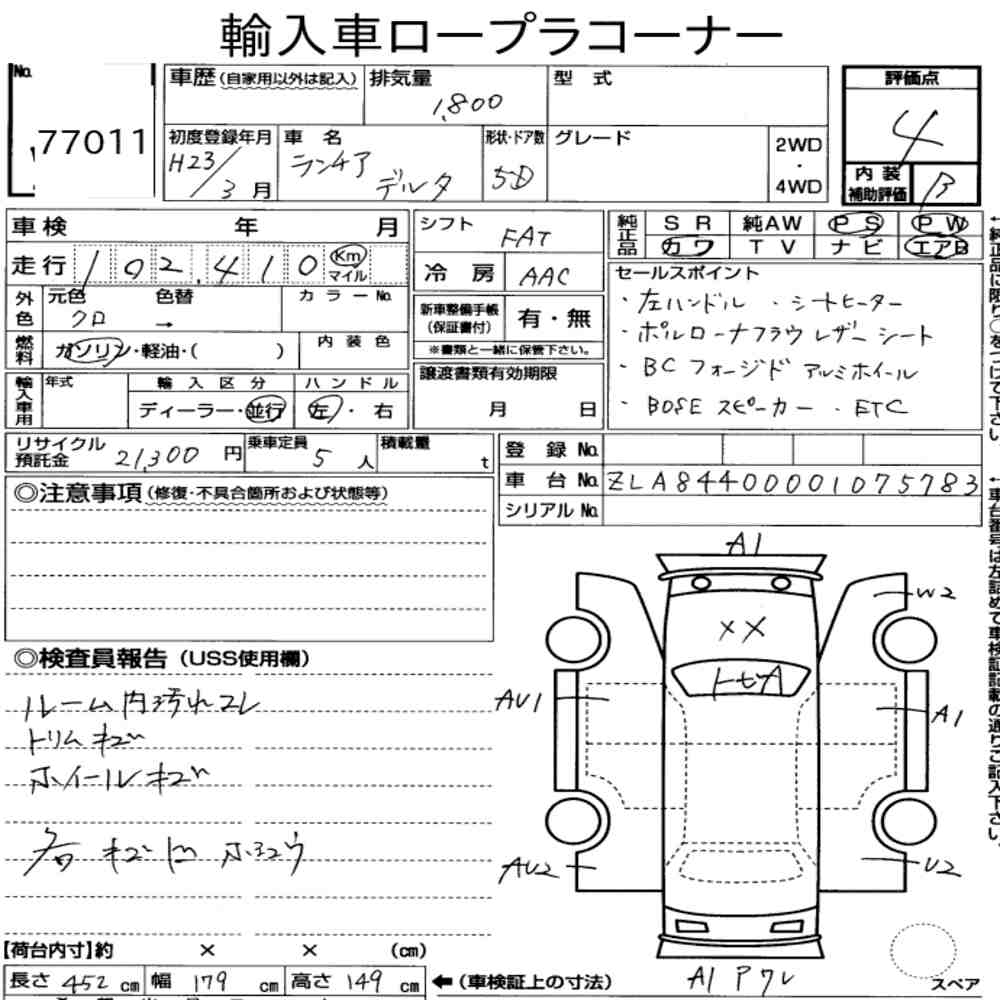 輸入車ロープラコーナー
No.
77011
車歴(自家用以外は記入)
排気量
1,800
型 式
評価点
4
初度登録年月
H23/3月
車 名
ランチア デルタ
形状・ドア数
5D
グレード
2WD
・
4WD
内 装
補助評価
B
車検 年 月
走行 102,410 Km マイル
外色
元色
クロ
色替
→
カラーNo.
燃料
ガソリン・軽油・( )
内 装 色
輸入車用
年式
輸 入 区 分
ディーラー・並行
ハ ン ド ル
左・右
シフト
FAT
冷 房
AAC
新車整備手帳
(保証書付)
有・無
※書類と一緒に保管下さい。
譲渡書類有効期限
月 日
純正品
SR 純AW PS PW
カワ TV ナビ エアB
セールスポイント
・左ハンドル ・シートヒーター
・ポルトローナフラウレザーシート
・BCフォージド アルミホイール
・BOSEスピーカー ・ETC
←純正品に限り○をつけて下さい。
リサイクル
預託金
21,300円
乗車定員
5人
積載量
t
登 録 No.
車 台 No. ZLA84400001075783
シリアル No.
←車台番号は左詰めで車検証記載の通りご記入下さい。
◎注意事項(修復・不具合箇所および状態等)
◎検査員報告(USS使用欄)
ルーム内汚れコレ
トリムキズ
ホイールキズ
各 キズ凹
A1
W2
××
トセA
AU1
A1
AU2
U2
A1 Pワレ
スペア
【荷台内寸】約 × × (cm)
長さ 452cm 幅 179cm 高さ 149cm
←(車検証上の寸法)